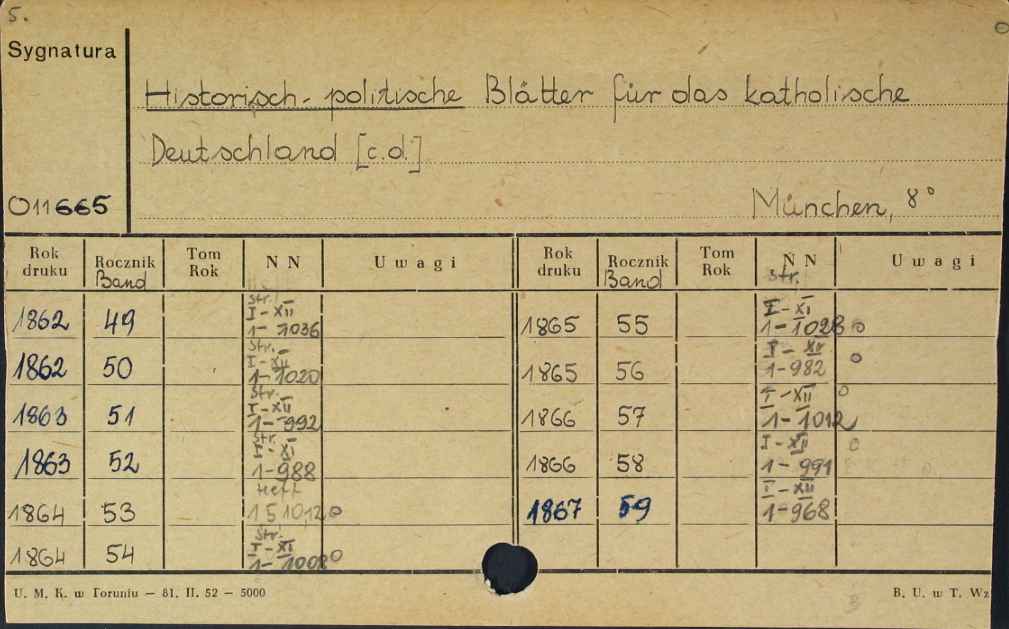 5.
Sygnatura
Historisch-politische Blätter für das katholische
Deutschland [c.d.]
O11665
München, 8°
Rok druku Rocznik Band Tom Rok N N U w a g i Rok druku Rocznik Band Tom Rok N N Str. U w a g i
1862 49 Str. I-XII 1-1036
1862 50 Str. I-XII 1-1020
1863 51 Str. I-XII 1-992
1863 52 Str. I-XI 1-988
1864 53 Heft
1864 54 Str. I-XI 1-1008 o
1865 55 I-XI 1-1028 o
1865 56 I-XII 1-982 o
1866 57 I-XII 1-1012 o
1866 58 I-XII 1-991 o
1867 59 I-XII 1-968
U. M. K. w Toruniu — 81. II. 52 — 5000
B. U. w T. Wz